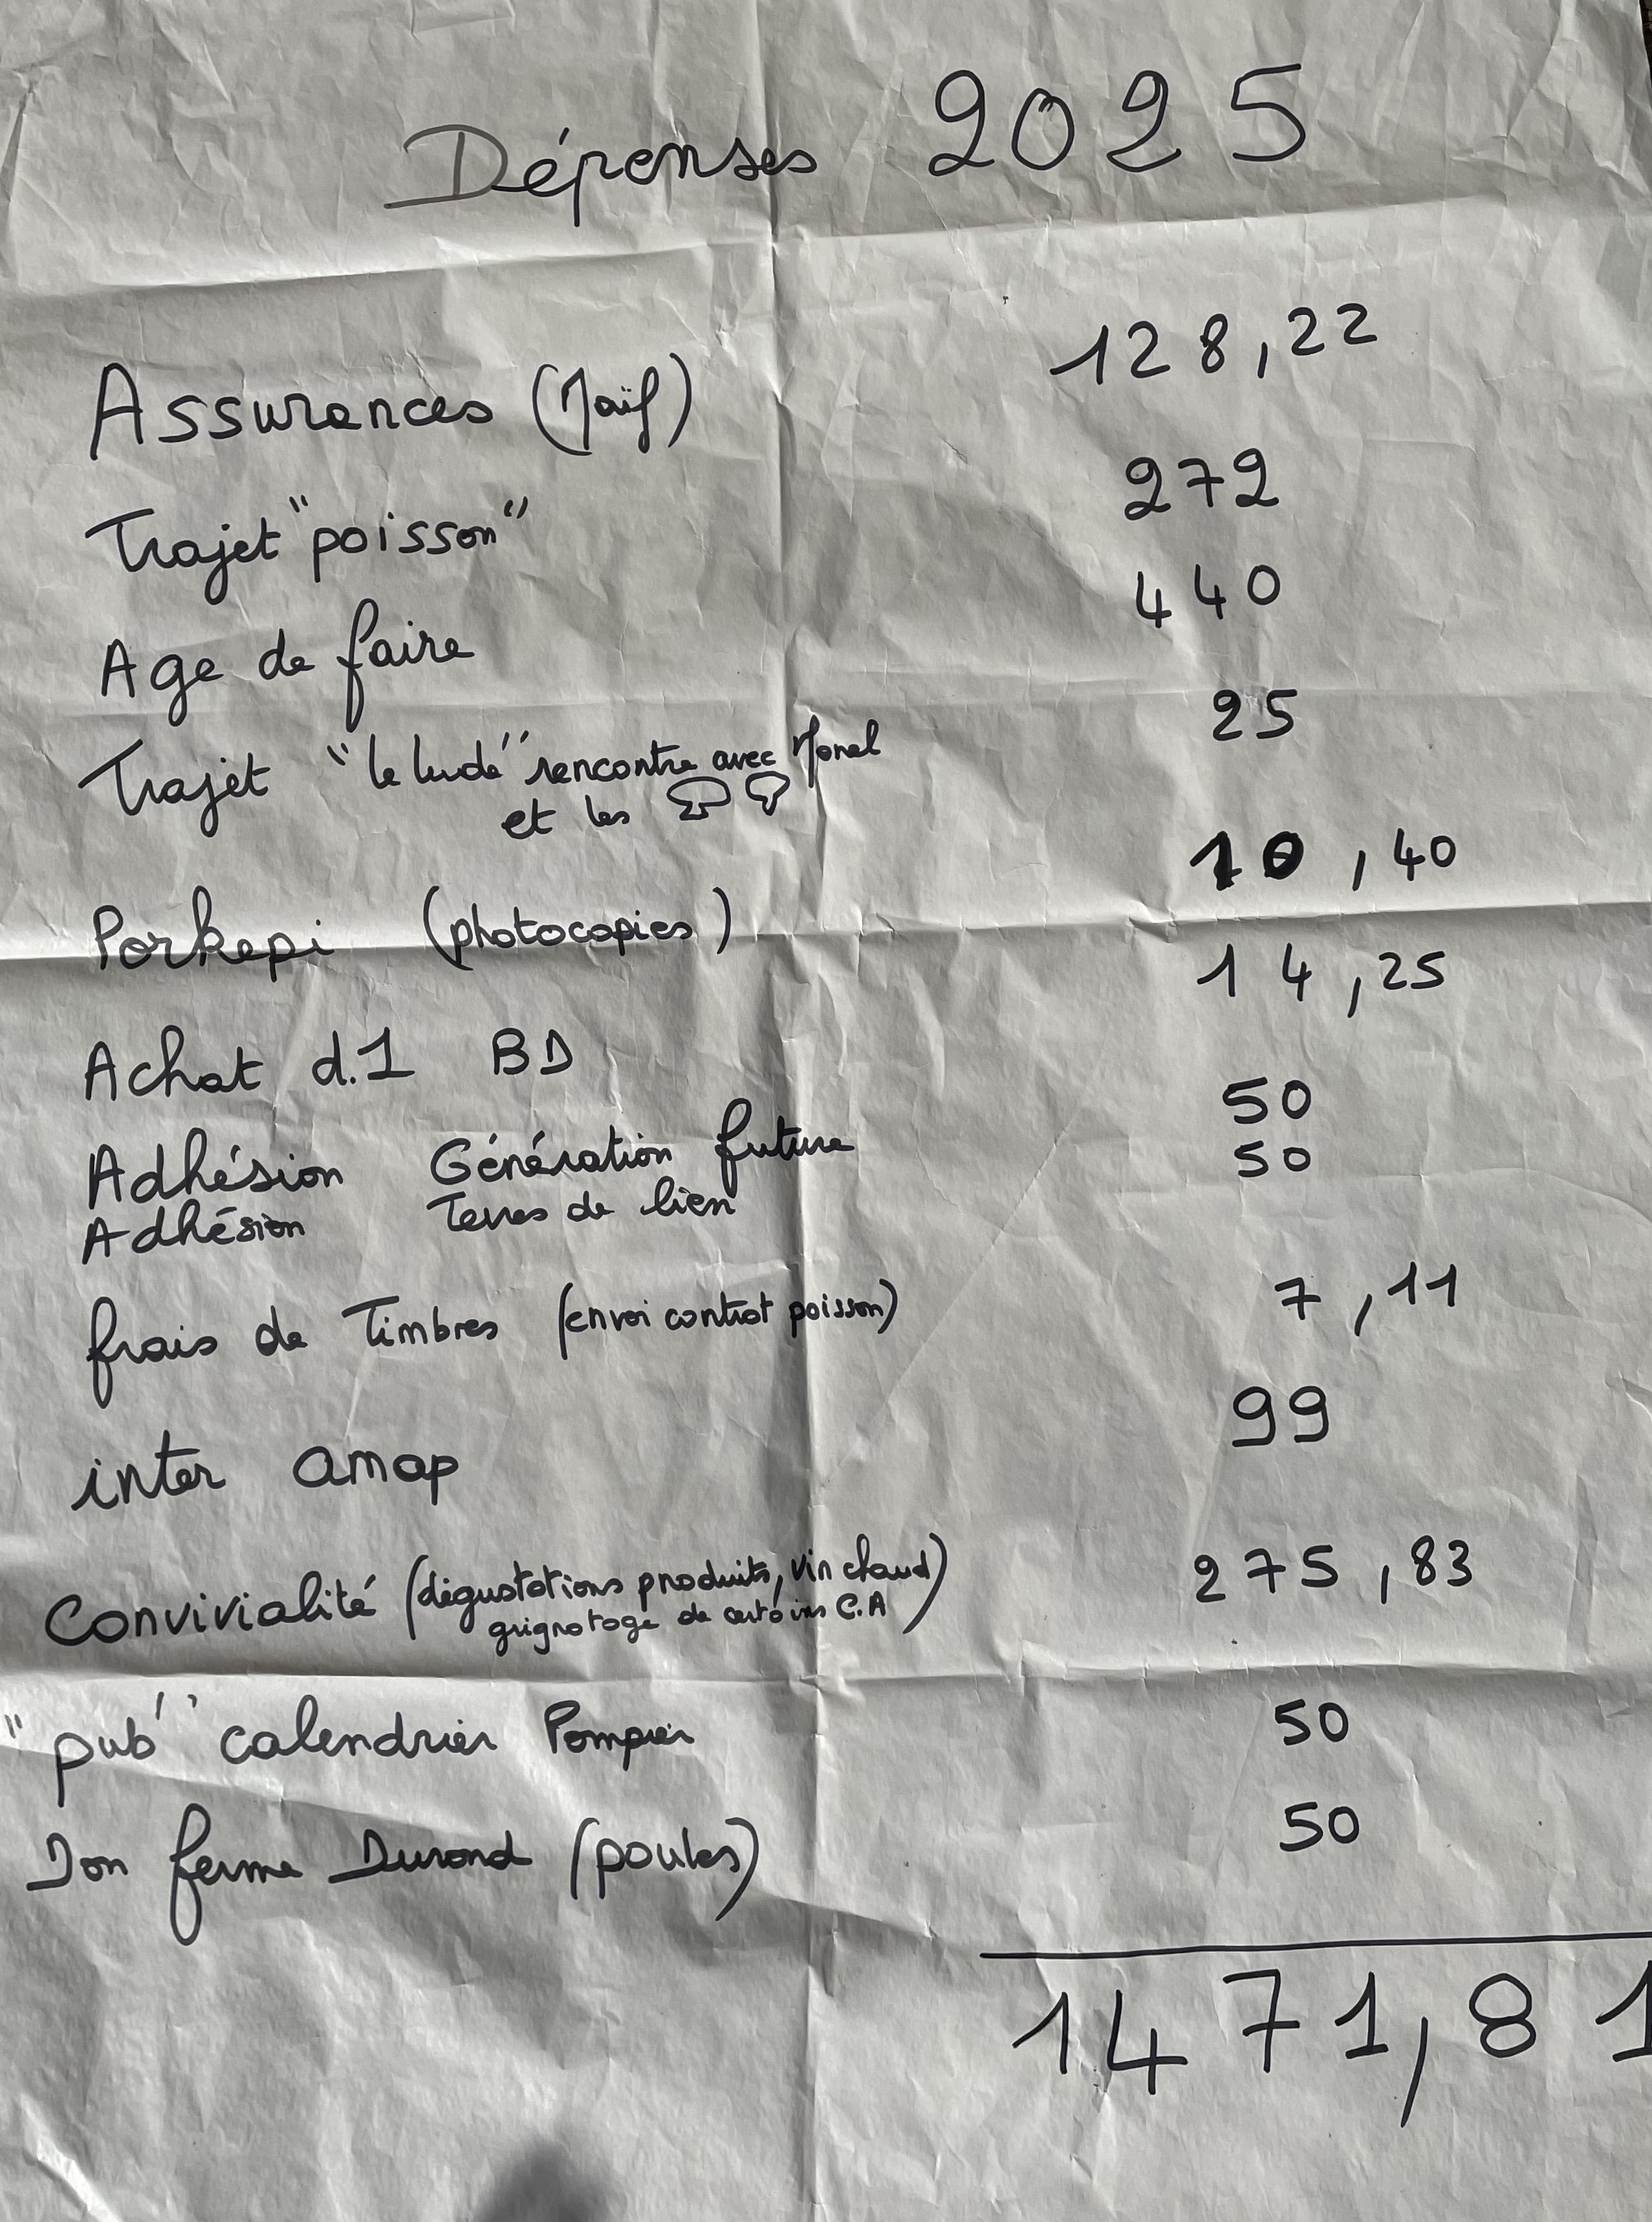 Dépenses 2025
Assurances (Maïf) 128,22
Trajet "poisson" 272
Age de faire 440
Trajet "le lude" rencontre avec Monel 25
et les
Porkepi (photocopies) 10,40
Achat d.1 BD 14,25
Adhésion Génération future 50
Adhésion Terres de lien 50
frais de Timbres (envoi contrat poisson) 7,11
inter amap 99
Convivialité (dégustations produits, vin chaud) 275,83
grignotage de certains C.A
"pub" calendrier Pompier 50
Don ferme Durand (poules) 50
1471,81